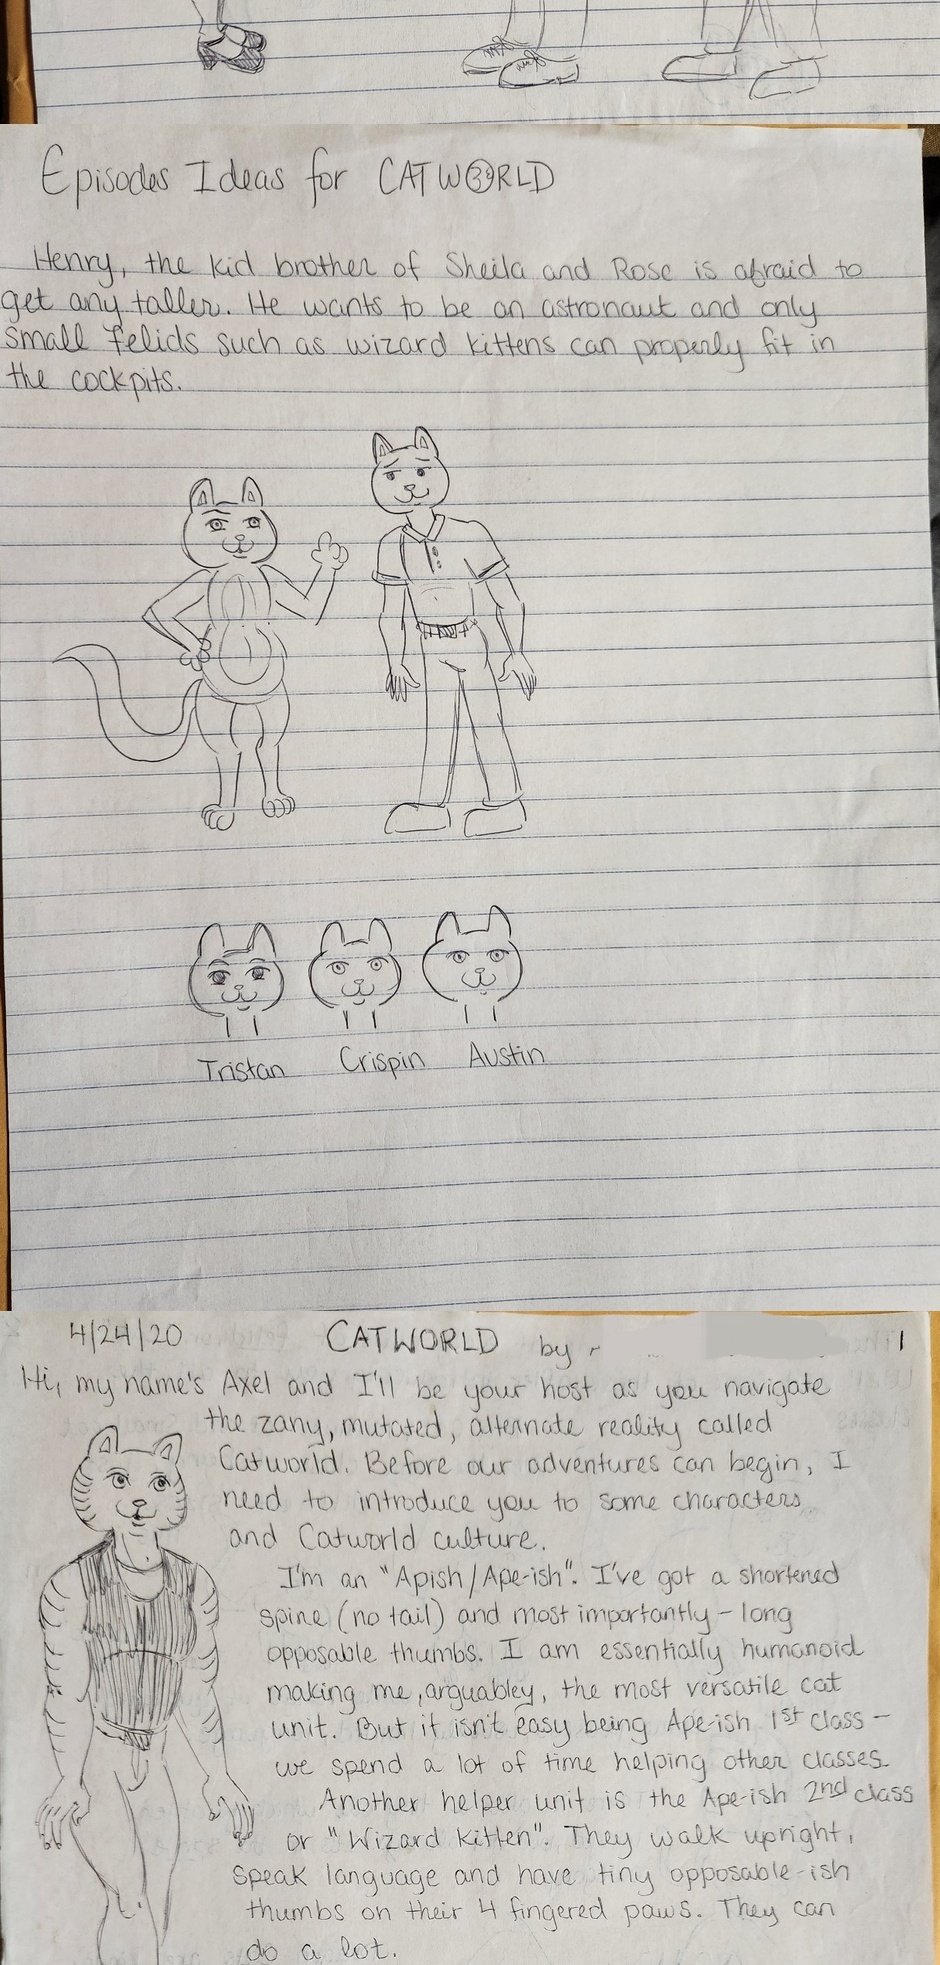 Episodes Ideas for CATWORLD
Henry, the kid brother of Sheila and Rose is afraid to
get any taller. He wants to be an astronaut and only
small felids such as wizard kittens can properly fit in
the cockpits.
Tristan Crispin Austin
4/24/20 CATWORLD by 1
Hi, my name's Axel and I'll be your host as you navigate
the zany, mutated, alternate reality called
Catworld. Before our adventures can begin, I
need to introduce you to some characters
and Catworld culture.
I'm an "Apish/Ape-ish". I've got a shortened
spine (no tail) and most importantly - long
opposable thumbs. I am essentially humanoid
making me, arguabley, the most versatile cat
unit. But it isn't easy being Ape-ish 1st class -
we spend a lot of time helping other classes.
Another helper unit is the Ape-ish 2nd class
or "Wizard Kitten". They walk upright,
speak language and have tiny opposable-ish
thumbs on their 4 fingered paws. They can
do a lot.